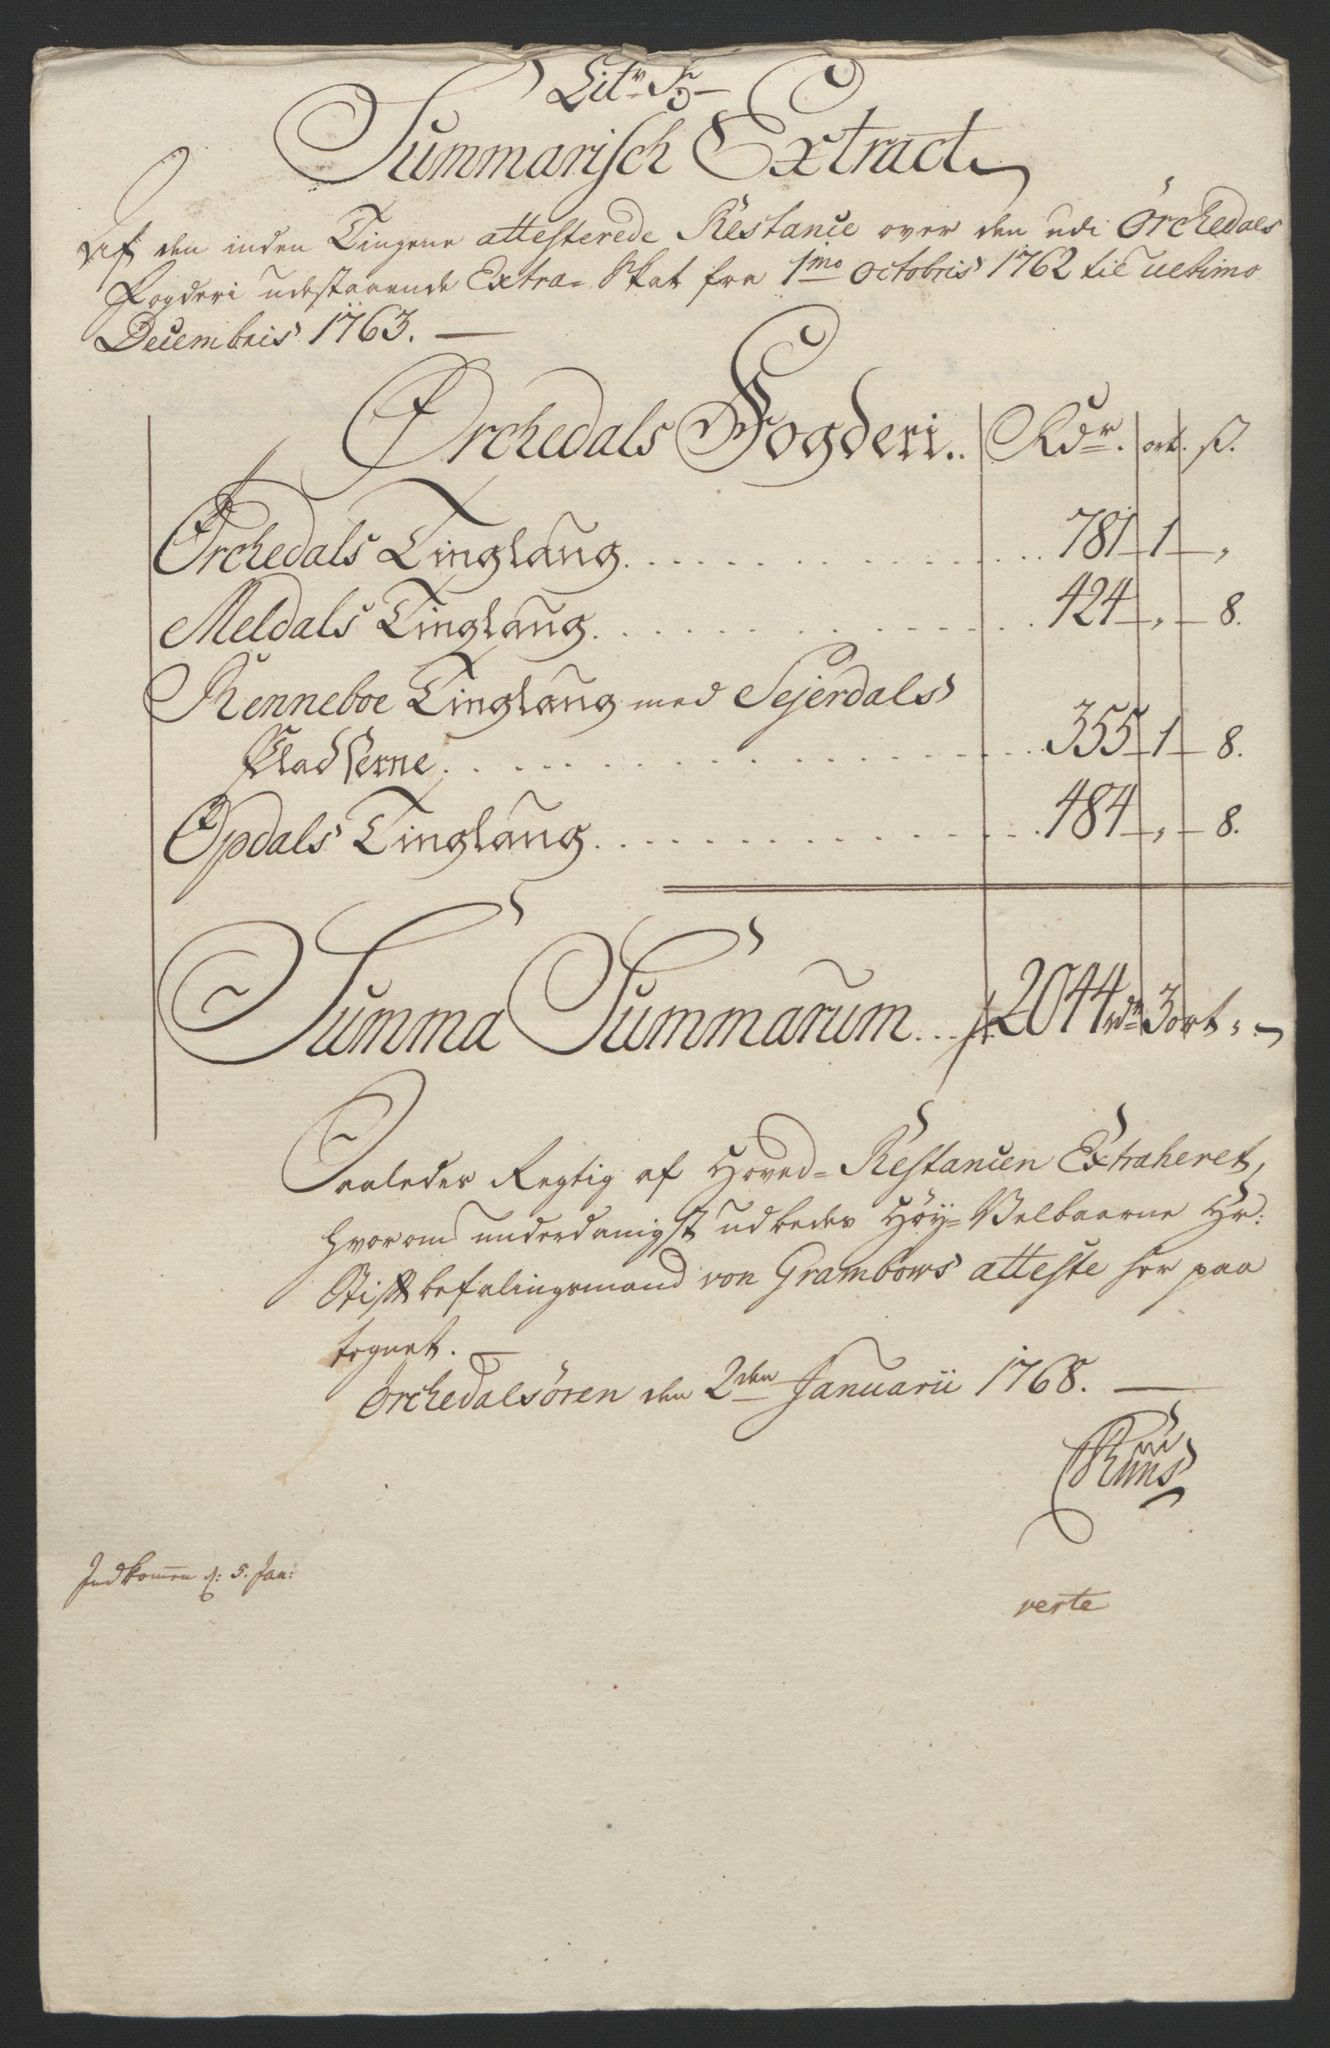 Litr F
Summarisch Extract
Af den inden Tingene attesterede Restance over den udi Orchedals
Fogderi udestaaende Extra-Skat fra 1mo Octobris 1762 til ultimo
Decembris 1763. —
Orchedals Fogderi.. Rdr. ort. ß.
Orchedals Tinglaug. . . . 781 – 1 – „
Meldals Tinglaug. . . . 424 – „ – 8.
Renneboe Tinglaug med Sejerdals
Pladserne. . . . 355 – 1 – 8.
Opdals Tinglaug. . . . 484 – „ – 8.
Summa Summarum. . . 2044 rdr 3 ort „ –
Saaledes Regtig af Hoved-Restancen Extraheret,
hvorom underdanigst udbedes Høy-Velbaarne Hr:
Stiftbefalingsmand von Grambows atteste her paa
tegnet. —
Orchedalsören den 2den Januarii 1768. —
Indkommen d: 5. Jan:
verte